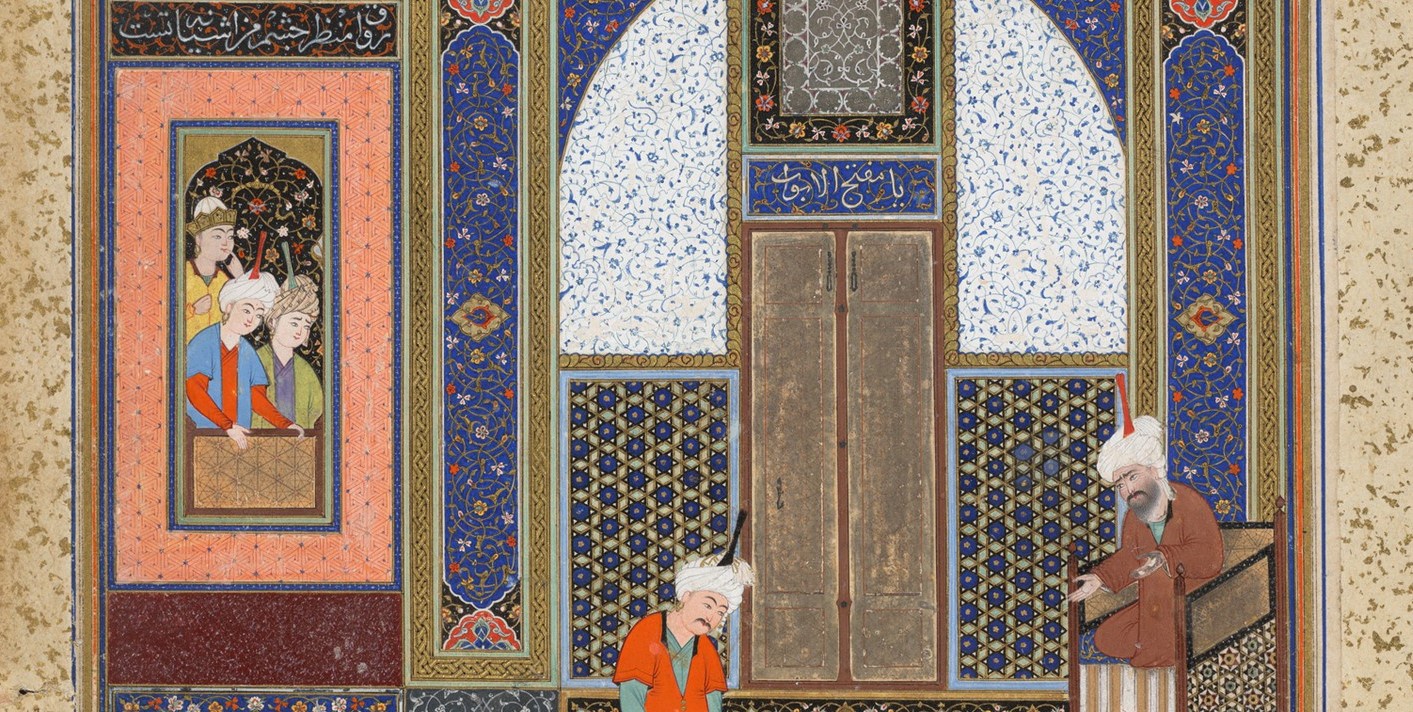 رواق منظر چشم من آشیانه تست
یا مفتح الابواب